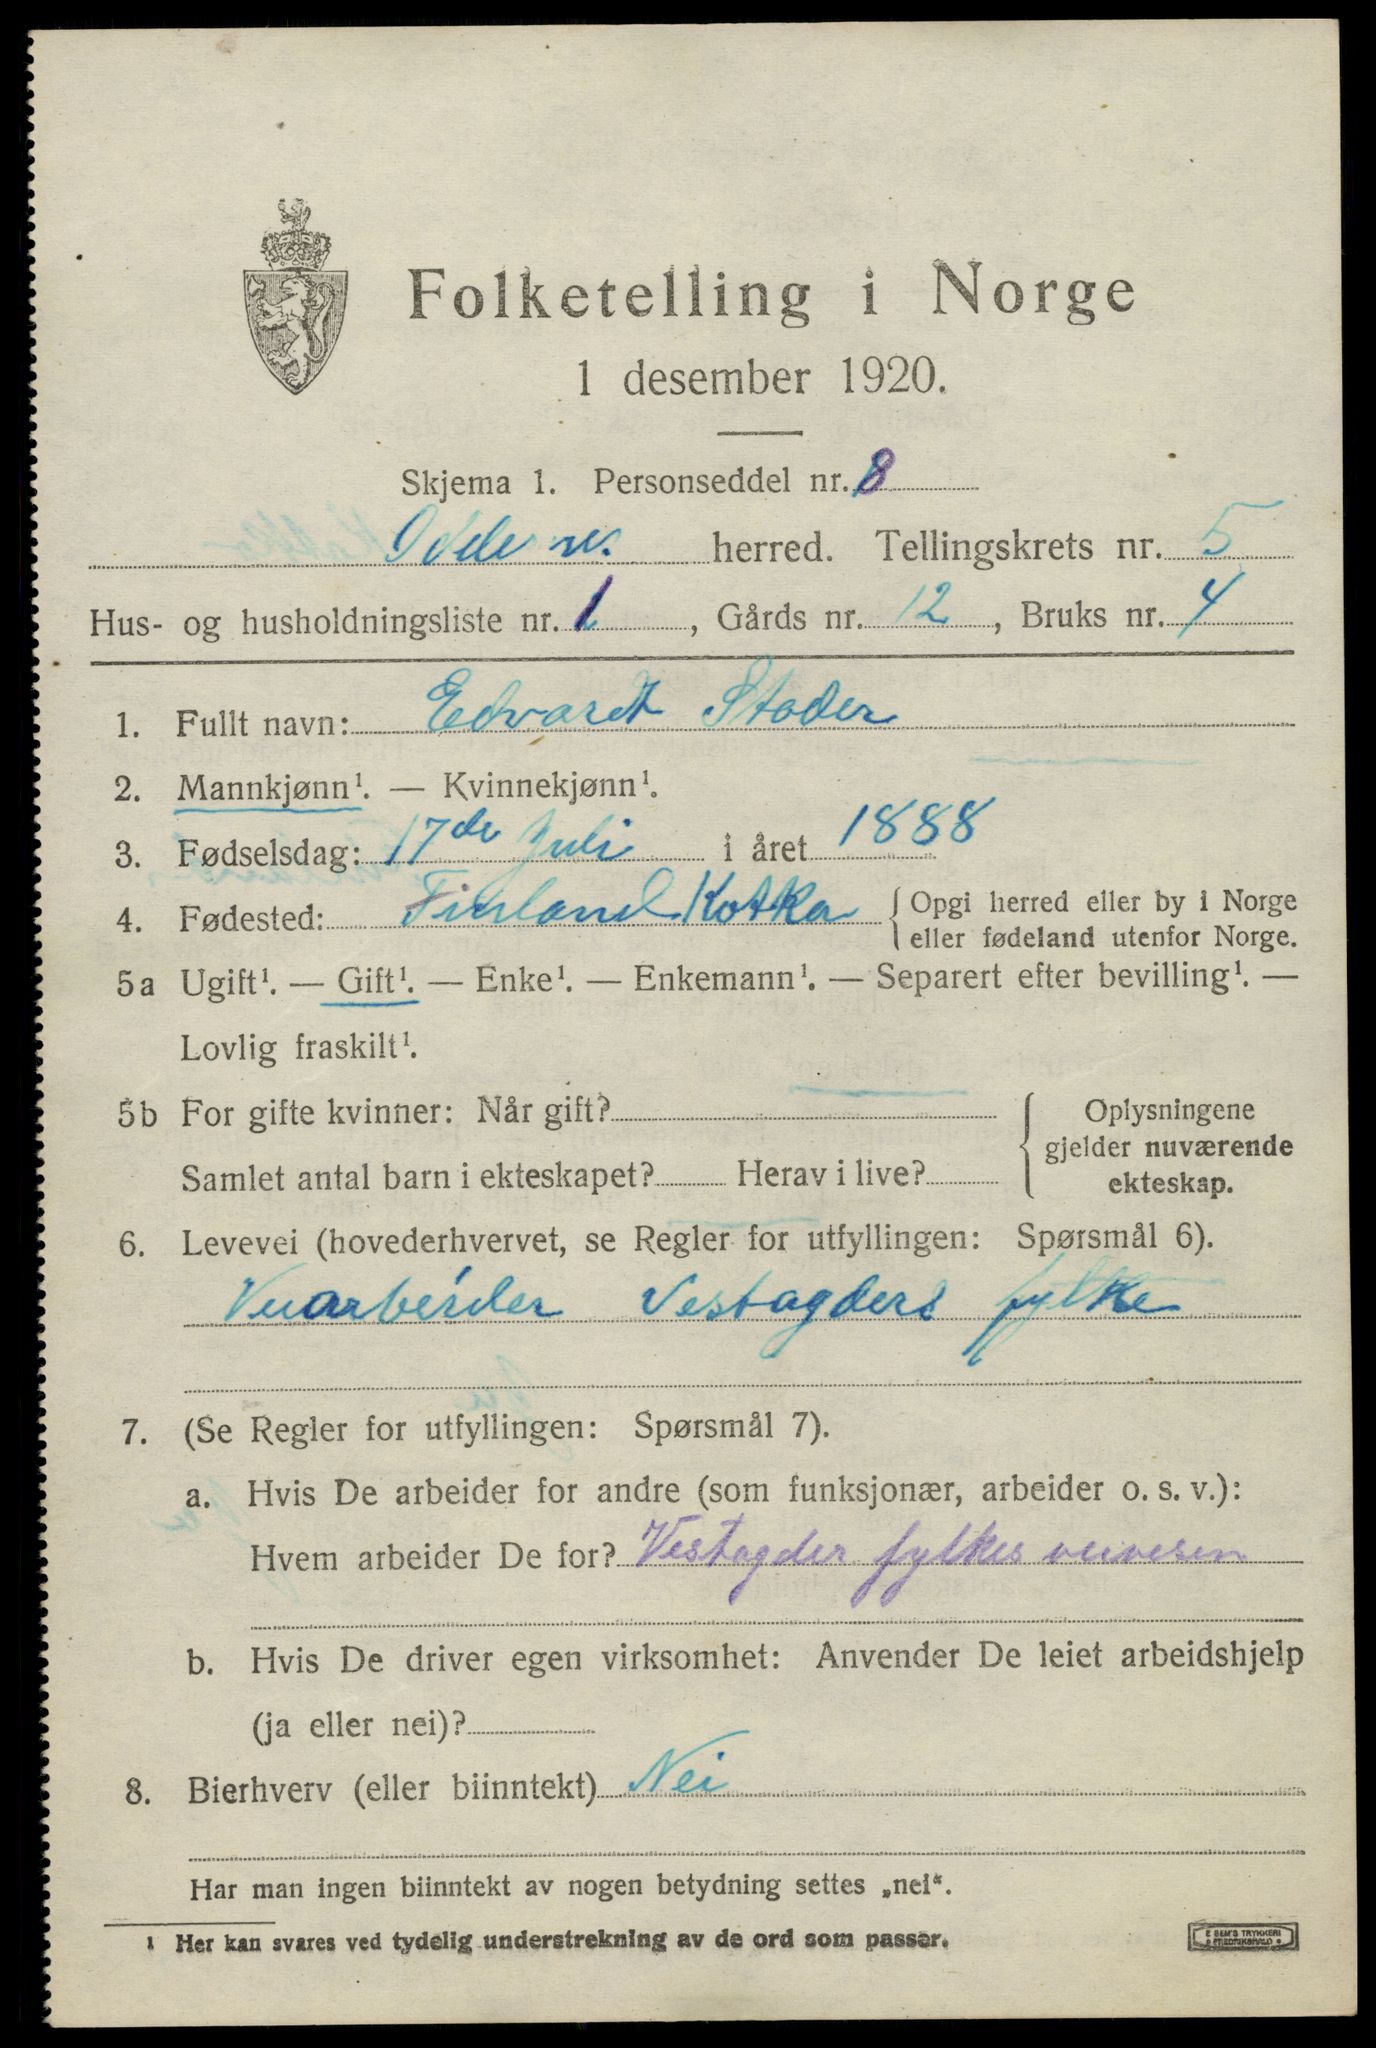 Folketelling i Norge
1 desember 1920.
Skjema 1. Personseddel nr. 8
Oddernes herred. Tellingskrets nr. 5
Hus- og husholdningsliste nr. 1, Gårds nr. 12, Bruks nr. 4
1. Fullt navn: Edvardt Stader
2. Mannkjønn¹. — Kvinnekjønn¹.
3. Fødselsdag: 17de Juli i året 1888
4. Fødested: Finland Kotka { Opgi herred eller by i Norge
eller fødeland utenfor Norge.
5a Ugift¹. — Gift¹. — Enke¹. — Enkemann¹. — Separert efter bevilling¹. —
Lovlig fraskilt¹.
5b For gifte kvinner: Når gift? { Oplysningene
gjelder nuværende
Samlet antal barn i ekteskapet? Herav i live? ekteskap.
6. Levevei (hovederhvervet, se Regler for utfyllingen: Spørsmål 6).
Veiarbeider Vestagders fylke
7. (Se Regler for utfyllingen: Spørsmål 7).
a. Hvis De arbeider for andre (som funksjonær, arbeider o. s. v.):
Hvem arbeider De for? Vestagder fylkes veivesen
b. Hvis De driver egen virksomhet: Anvender De leiet arbeidshjelp
(ja eller nei)?
8. Bierhverv (eller biinntekt) Nei
Har man ingen biinntekt av nogen betydning settes „nei“.
¹ Her kan svares ved tydelig understrekning av de ord som passer.
E SEM'S TRYKKERI
FREDRIKSHALD